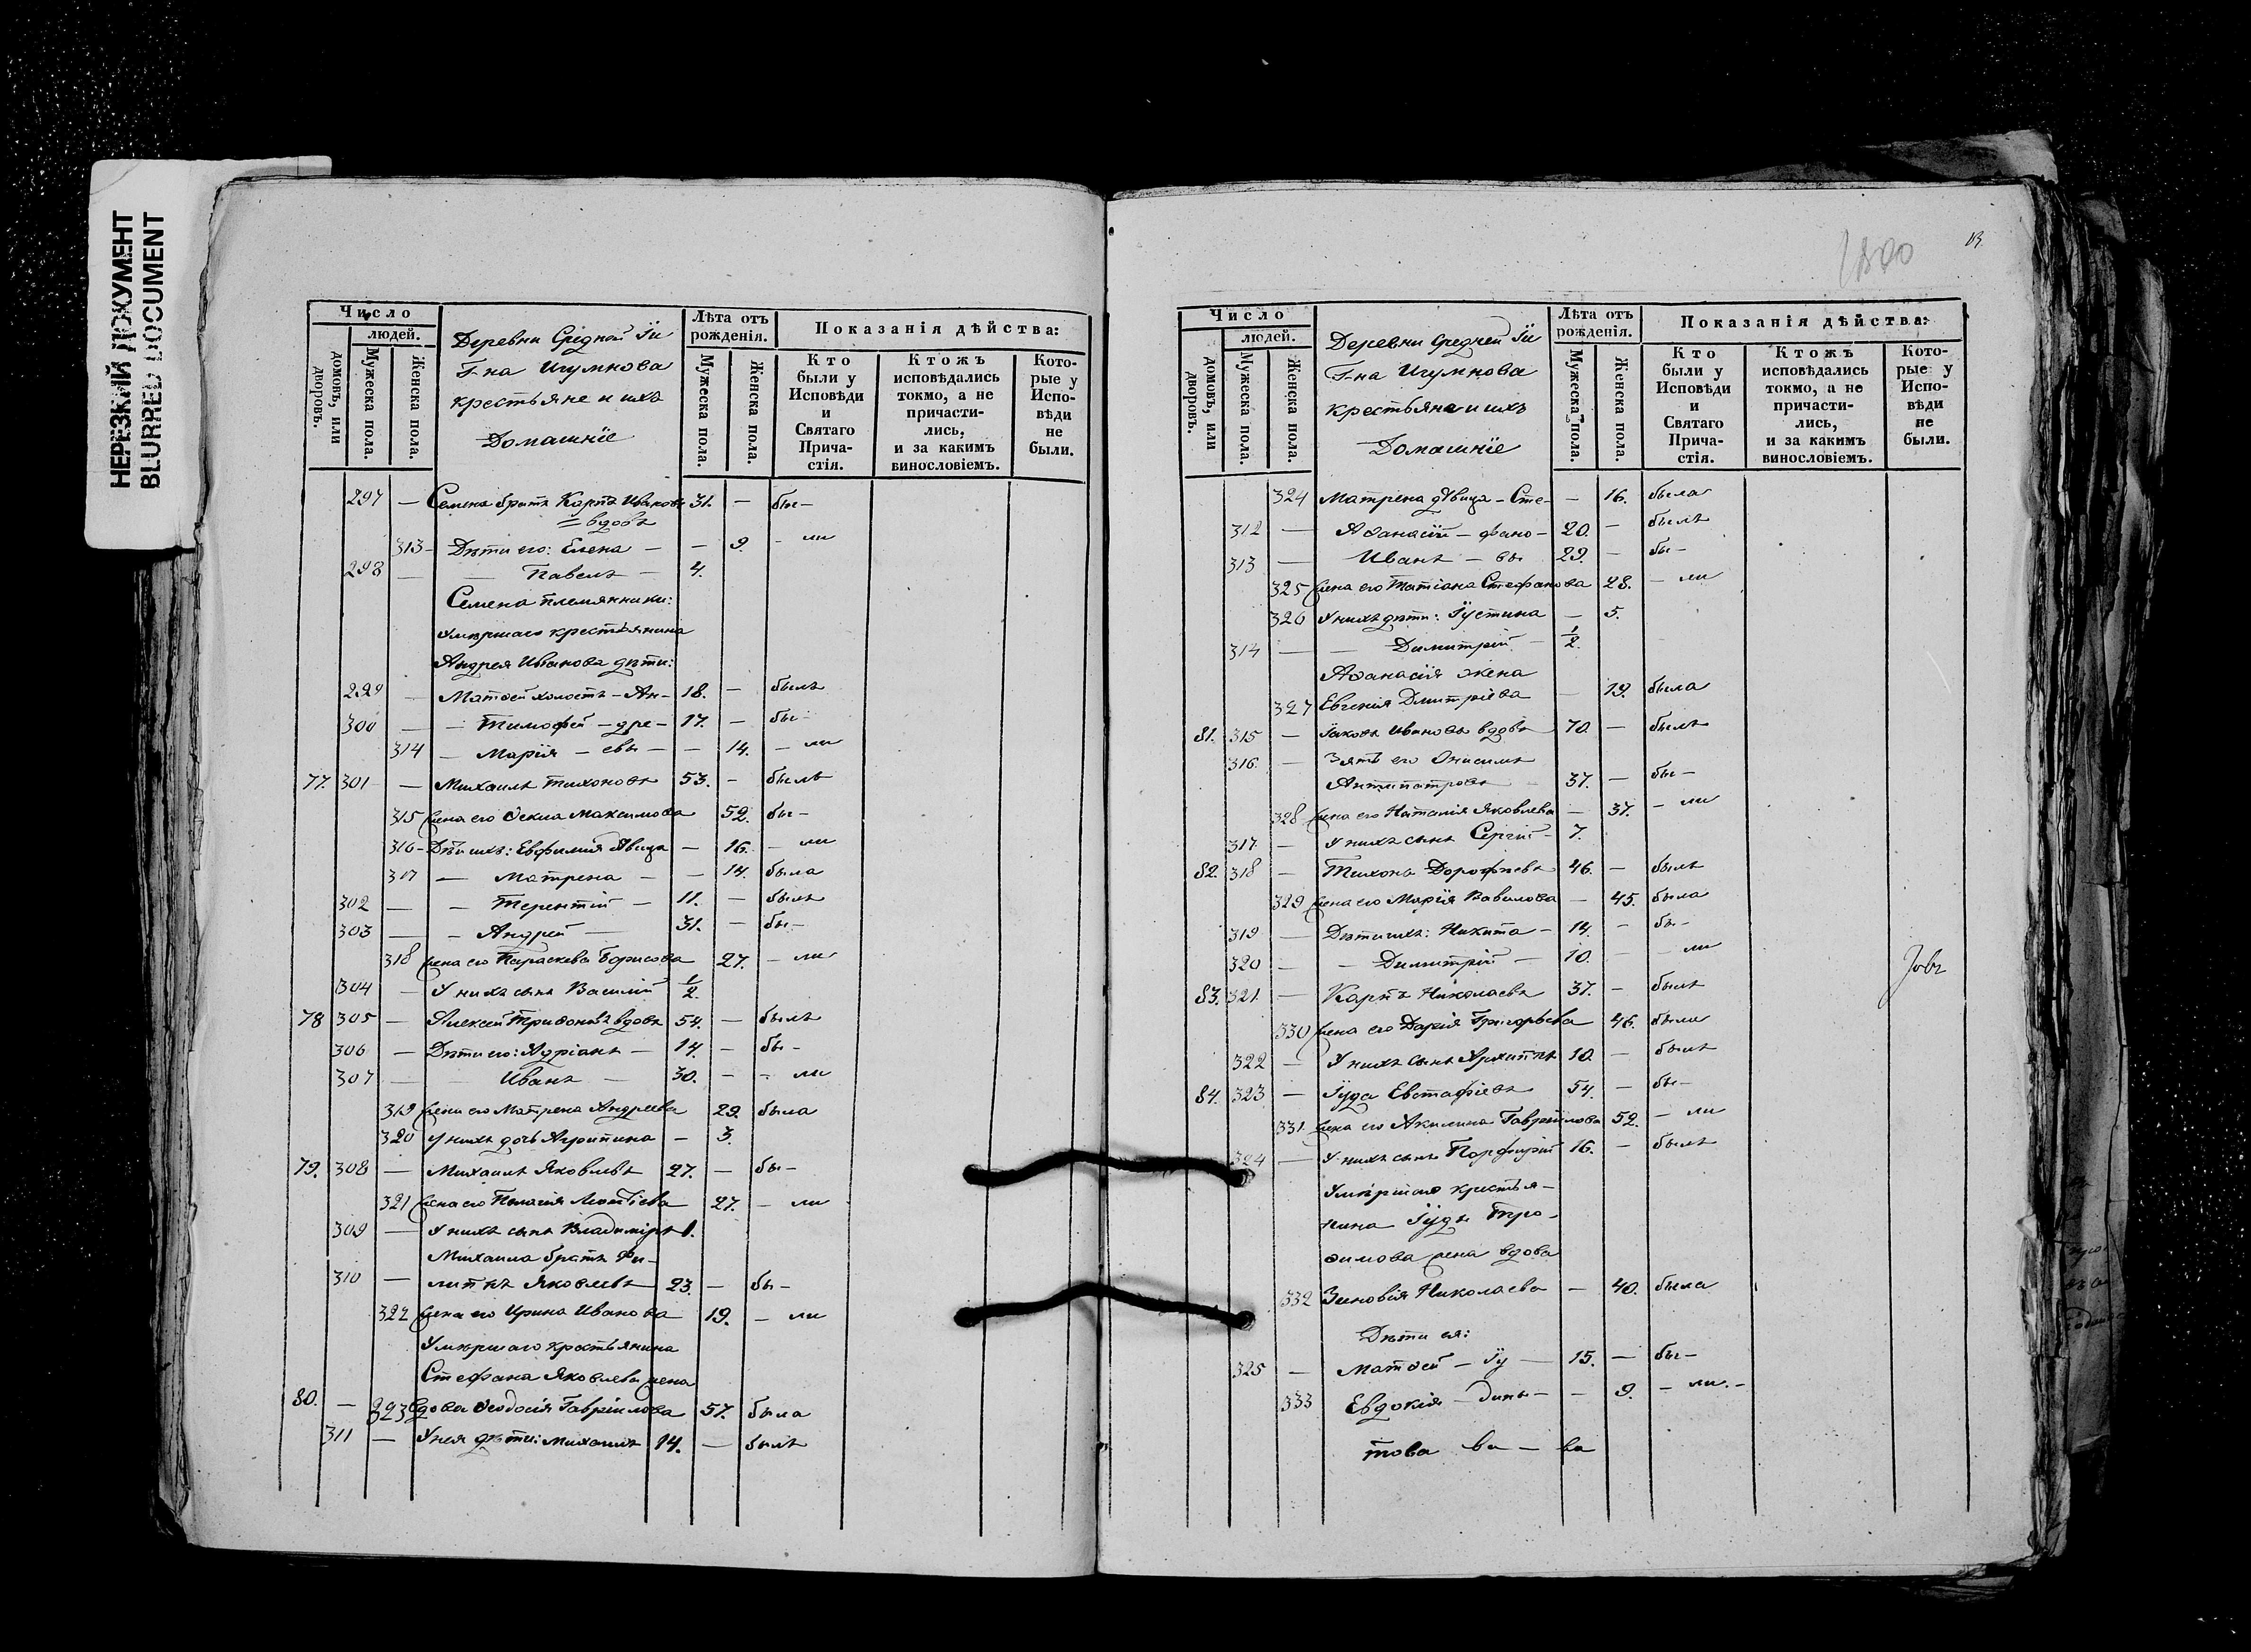 НЕРЕЗКИЙ ДОКУМЕНТ
BLURRED DOCUMENT
Число
людей.
домовъ, или дворовъ.
Мужеска пола.
Женска пола.
Деревни Средней Їи
Г-на Игумнова
крестьяне и ихъ
Домашніе
Лѣта отъ рожденія.
Мужеска пола.
Женска пола.
Показанія дѣйства:
Кто были у Исповѣди и Святаго Причастія.
Ктожъ исповѣдались токмо, а не причастились, и за какимъ винословіемъ.
Которые у Исповѣди не были.
297 — Семена братъ Карпъ Ивановъ 31. — бы-
= вдовъ
313 - Дѣти его: Елена — — 9. - ли
298 — — Павелъ — 4.
Семена племянники:
Умершаго крестьянина
Андрея Иванова дѣти:
299 — Матѳей холостъ - Ан- 18. — былъ
300 — — Тимофей - дре- 17. — бы-
314 — Марія - евы - — 14. - ли
77. 301 — Михаилъ Тихоновъ 53. - былъ
315 жена его Ѳекла Максимова 52. бы-
316 - Дѣти ихъ: Евфимія дѣвица — 16. - ли
317 — Матрена — — 14. была
302 — — Терентій — 11. — былъ
303 — - Андрей — 31. - бы-
318 жена его Параскева Борисова 27. - ли
304 — У нихъ сынъ Василій 1/2.
78 305 — Алексей Трифоновъ вдовъ 54. — былъ
306 — Дѣти его: Адріанъ — 14. - бы-
307 — — Иванъ — 30. - - ли
319 жена его Матрена Андреева 29. была
320 У нихъ дочь Агрипина — 3.
79. 308 — Михаилъ Яковлевъ 27. — бы-
321 жена его Пелагія Леонтіева 27. - ли
309 — У нихъ сынъ Владимиръ 1.
Михаила братъ Фи-
310 — липпъ Яковлевъ 23. — бы-
322 жена его Ирина Иванова 19. - ли
Умершаго крестьянина
Стефана Яковлева жена
80. — 323 вдова Ѳеодосія Гавріилова 57. была
311 — У нея дѣти: Михаилъ 14. — былъ
1800
13
Число
людей.
домовъ, или дворовъ.
Мужеска пола.
Женска пола.
Деревни Средней Їи
Г-на Игумнова
крестьяне и ихъ
Домашніе
Лѣта отъ рожденія.
Мужеска пола.
Женска пола.
Показанія дѣйства:
Кто были у Исповѣди и Святаго Причастія.
Ктожъ исповѣдались токмо, а не причастились, и за какимъ винословіемъ.
Которые у Исповѣди не были.
324 Матрена дѣвица - Сте- — 16. была
312 — Аѳанасій - фано- 20. - былъ
313 — Иванъ - вы 29. - бы-
325 жена его Татіана Стефанова 28. - ли
326 У нихъ дѣти: Їустина — 5.
314 — — Димитрій — 1/2.
Аѳанасія жена
327 Евгенія Дмитріева — 19. была
81. 315 — Їаковъ Ивановъ вдовъ 70. — былъ
316. — Зять его Онисимъ
Антипатровъ 37. — бы-
328 жена его Наталія Яковлева — 37. - ли
317 — У нихъ сынъ Сергій - 7.
82. 318 — Тихонъ Дорофеевъ 46. — былъ
329 жена его Марія Вавилова — 45. была
319 — Дѣти ихъ: Никита - 14. - бы-
320 — — Димитрій — 10. — ли
83. 321. — Карпъ Николаевъ 37. - былъ
330 жена его Дарія Григорьева 46. была
322 — У нихъ сынъ Архиппъ 10. — былъ
84. 323 — Їуда Евстафіевъ 54. — бы-
331. жена его Акилина Гавріилова 52. - ли
324 — У нихъ сынъ Порфирій 16. - былъ
Умершаго крестья-
нина Їуды Тро-
фимова жена вдова
332 Зиновія Николаева — 40. была
Дѣти ея:
325 — Матѳей - Їу — 15. — бы-
333 Евдокія - дины - — 9. - ли. -
това ва - ва